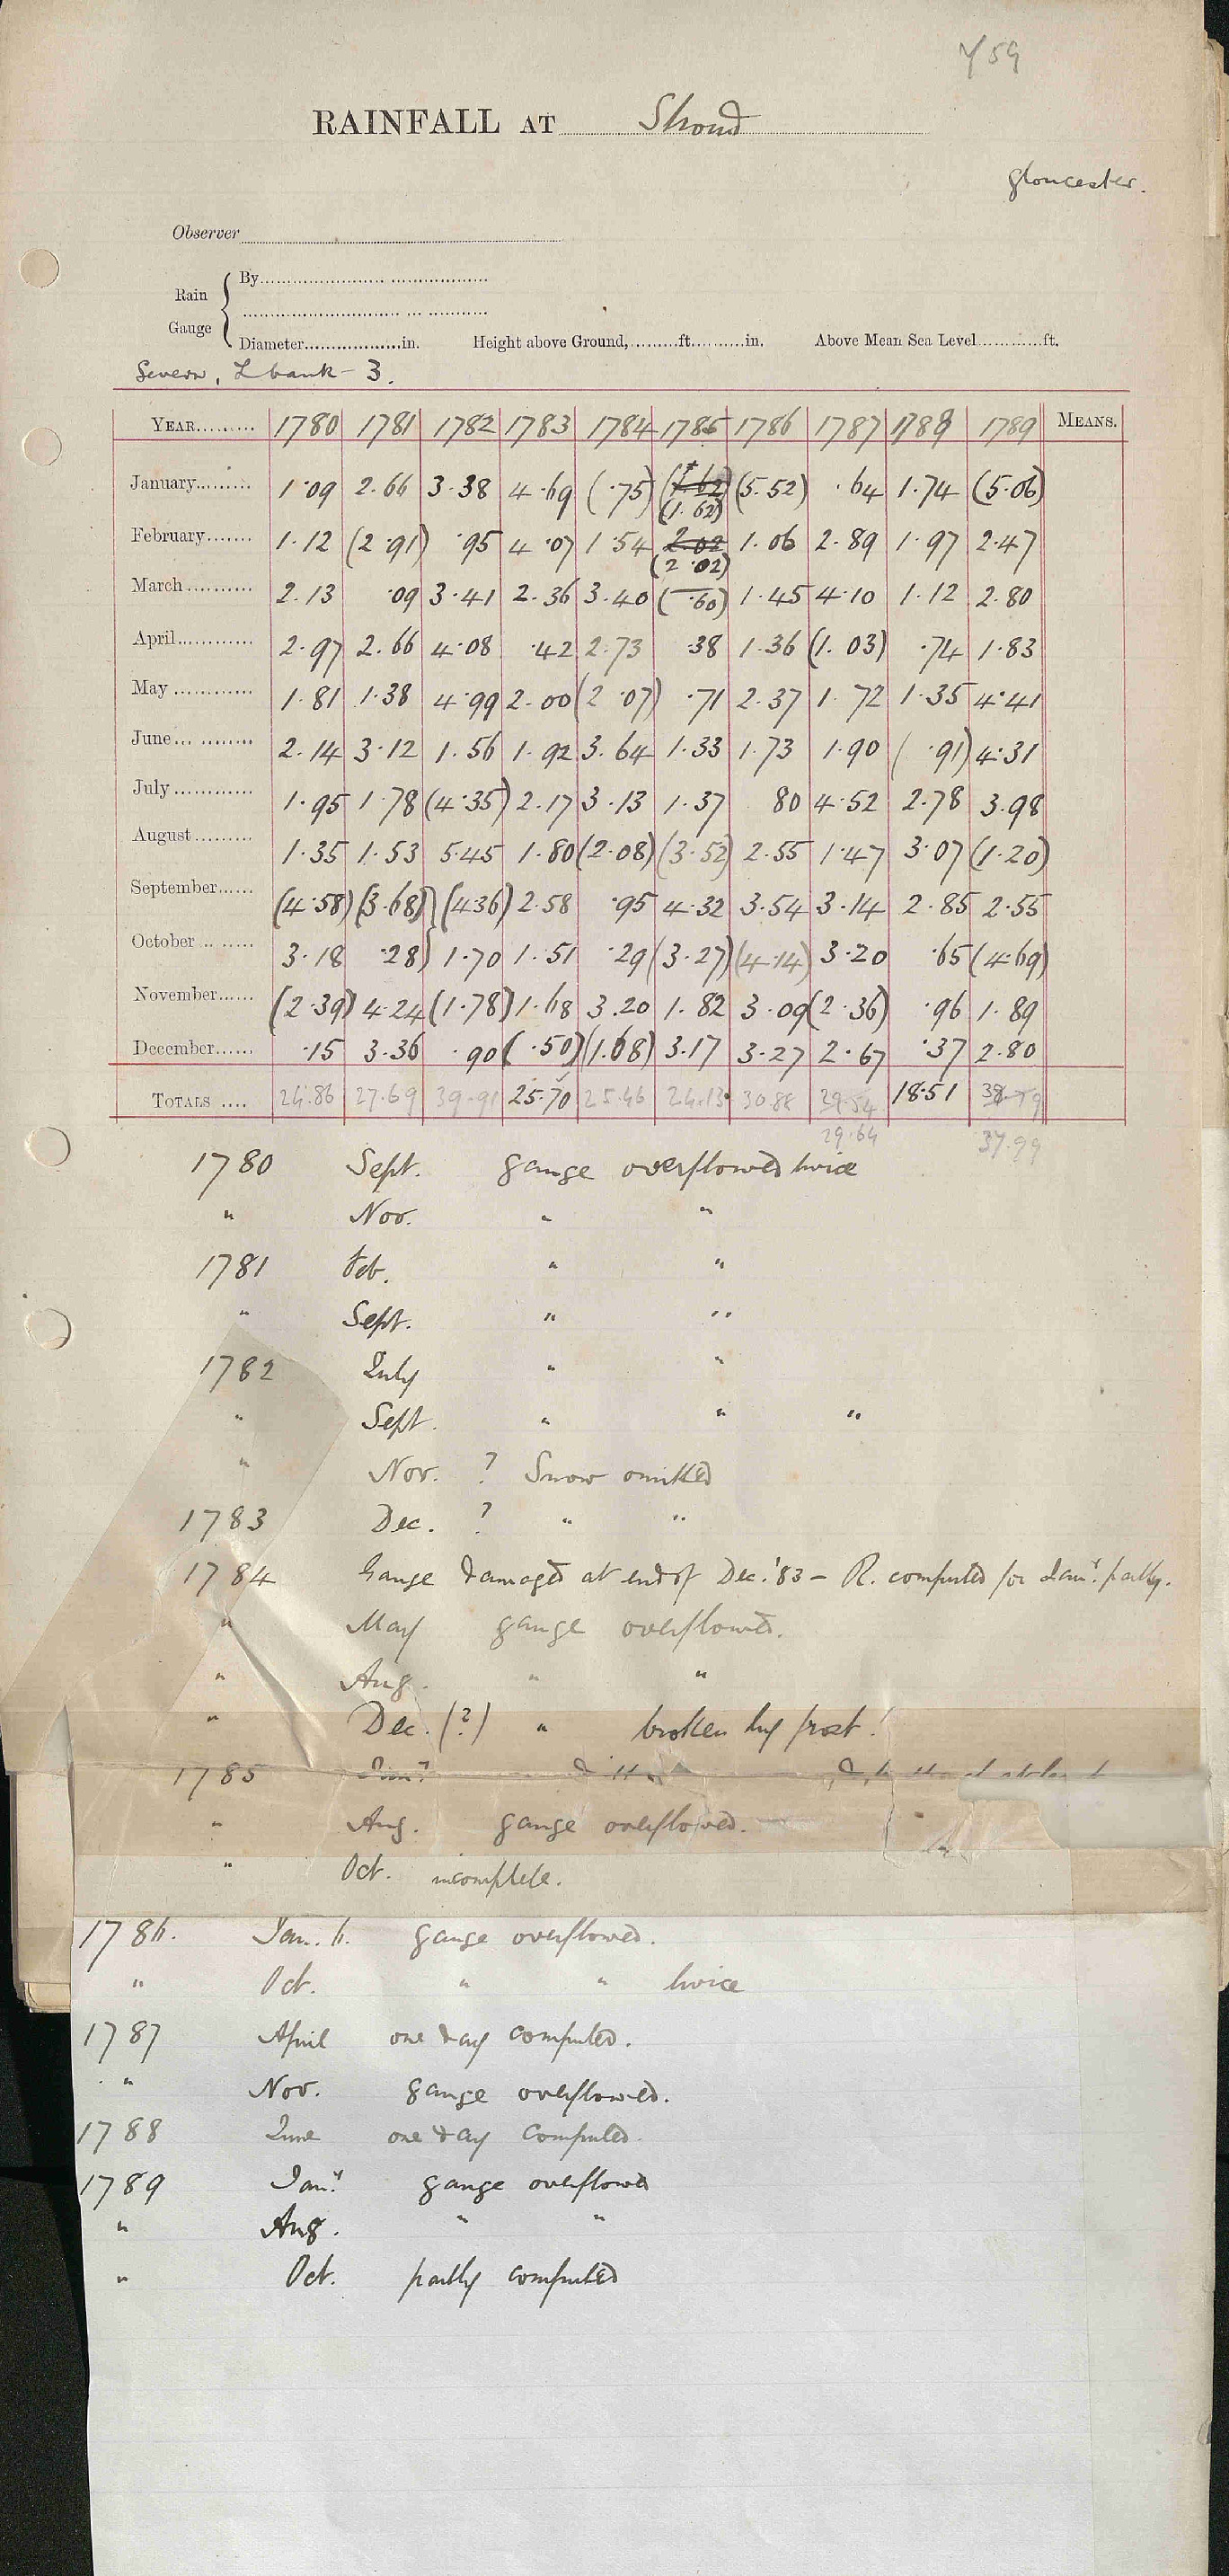 759
RAINFALL AT Stroud
Gloucester.
Observer
Rain Gauge { By
Diameter in. Height above Ground, ft. in. Above Mean Sea Level ft.
Severn, L bank - 3.
YEAR 1780 1781 1782 1783 1784 1785 1786 1787 1788 1789 MEANS.
January 1.09 2.66 3.38 4.69 (.75) (1.62) (5.52) .64 1.74 (5.06)
(1.62)
February 1.12 (2.91) .95 4.07 1.54 2.02 1.06 2.89 1.97 2.47
(2.02)
March 2.13 .09 3.41 2.36 3.40 (.60) 1.45 4.10 1.12 2.80
April 2.97 2.66 4.08 .42 2.73 .38 1.36 (1.03) .74 1.83
May 1.81 1.38 4.99 2.00 (2.07) .71 2.37 1.72 1.35 4.41
June 2.14 3.12 1.56 1.92 3.64 1.33 1.73 1.90 (.91) 4.31
July 1.95 1.78 (4.35) 2.17 3.13 1.37 80 4.52 2.78 3.98
August 1.35 1.53 5.45 1.80 (2.08) (3.52) 2.55 1.47 3.07 (1.20)
September (4.58) (3.68) (4.36) 2.58 .95 4.32 3.54 3.14 2.85 2.55
October 3.18 .28) 1.70 1.51 .29 (3.27) (4.14) 3.20 .65 (4.69)
November (2.39) 4.24 (1.78) 1.68 3.20 1.82 3.09 (2.36) .96 1.89
December .15 3.36 .90 (.50) (1.68) 3.17 3.27 2.67 .37 2.80
TOTALS 24.86 27.69 39.91 25.70 25.46 24.13 30.88 29.54 18.51
29.64 37.99
1780 Sept. gauge overflowed twice
" Nov. " "
1781 Feb. " "
" Sept. " "
1782 July " "
" Sept. " " "
" Nov. ? Snow omitted
1783 Dec. ? " "
1784 Gauge damaged at end of Dec. '83 - R. computed for Jany. partly.
" May gauge overflowed.
" Aug. " "
" Dec. (?) " broken by frost!
1785
" Aug. gauge overflowed.
" Oct. incomplete.
1786. Jan. 6. gauge overflowed.
" Oct. " " twice
1787 April one day computed.
" Nov. gauge overflowed.
1788 June one day computed.
1789 Jany. gauge overflowed
" Aug. " "
" Oct. partly computed